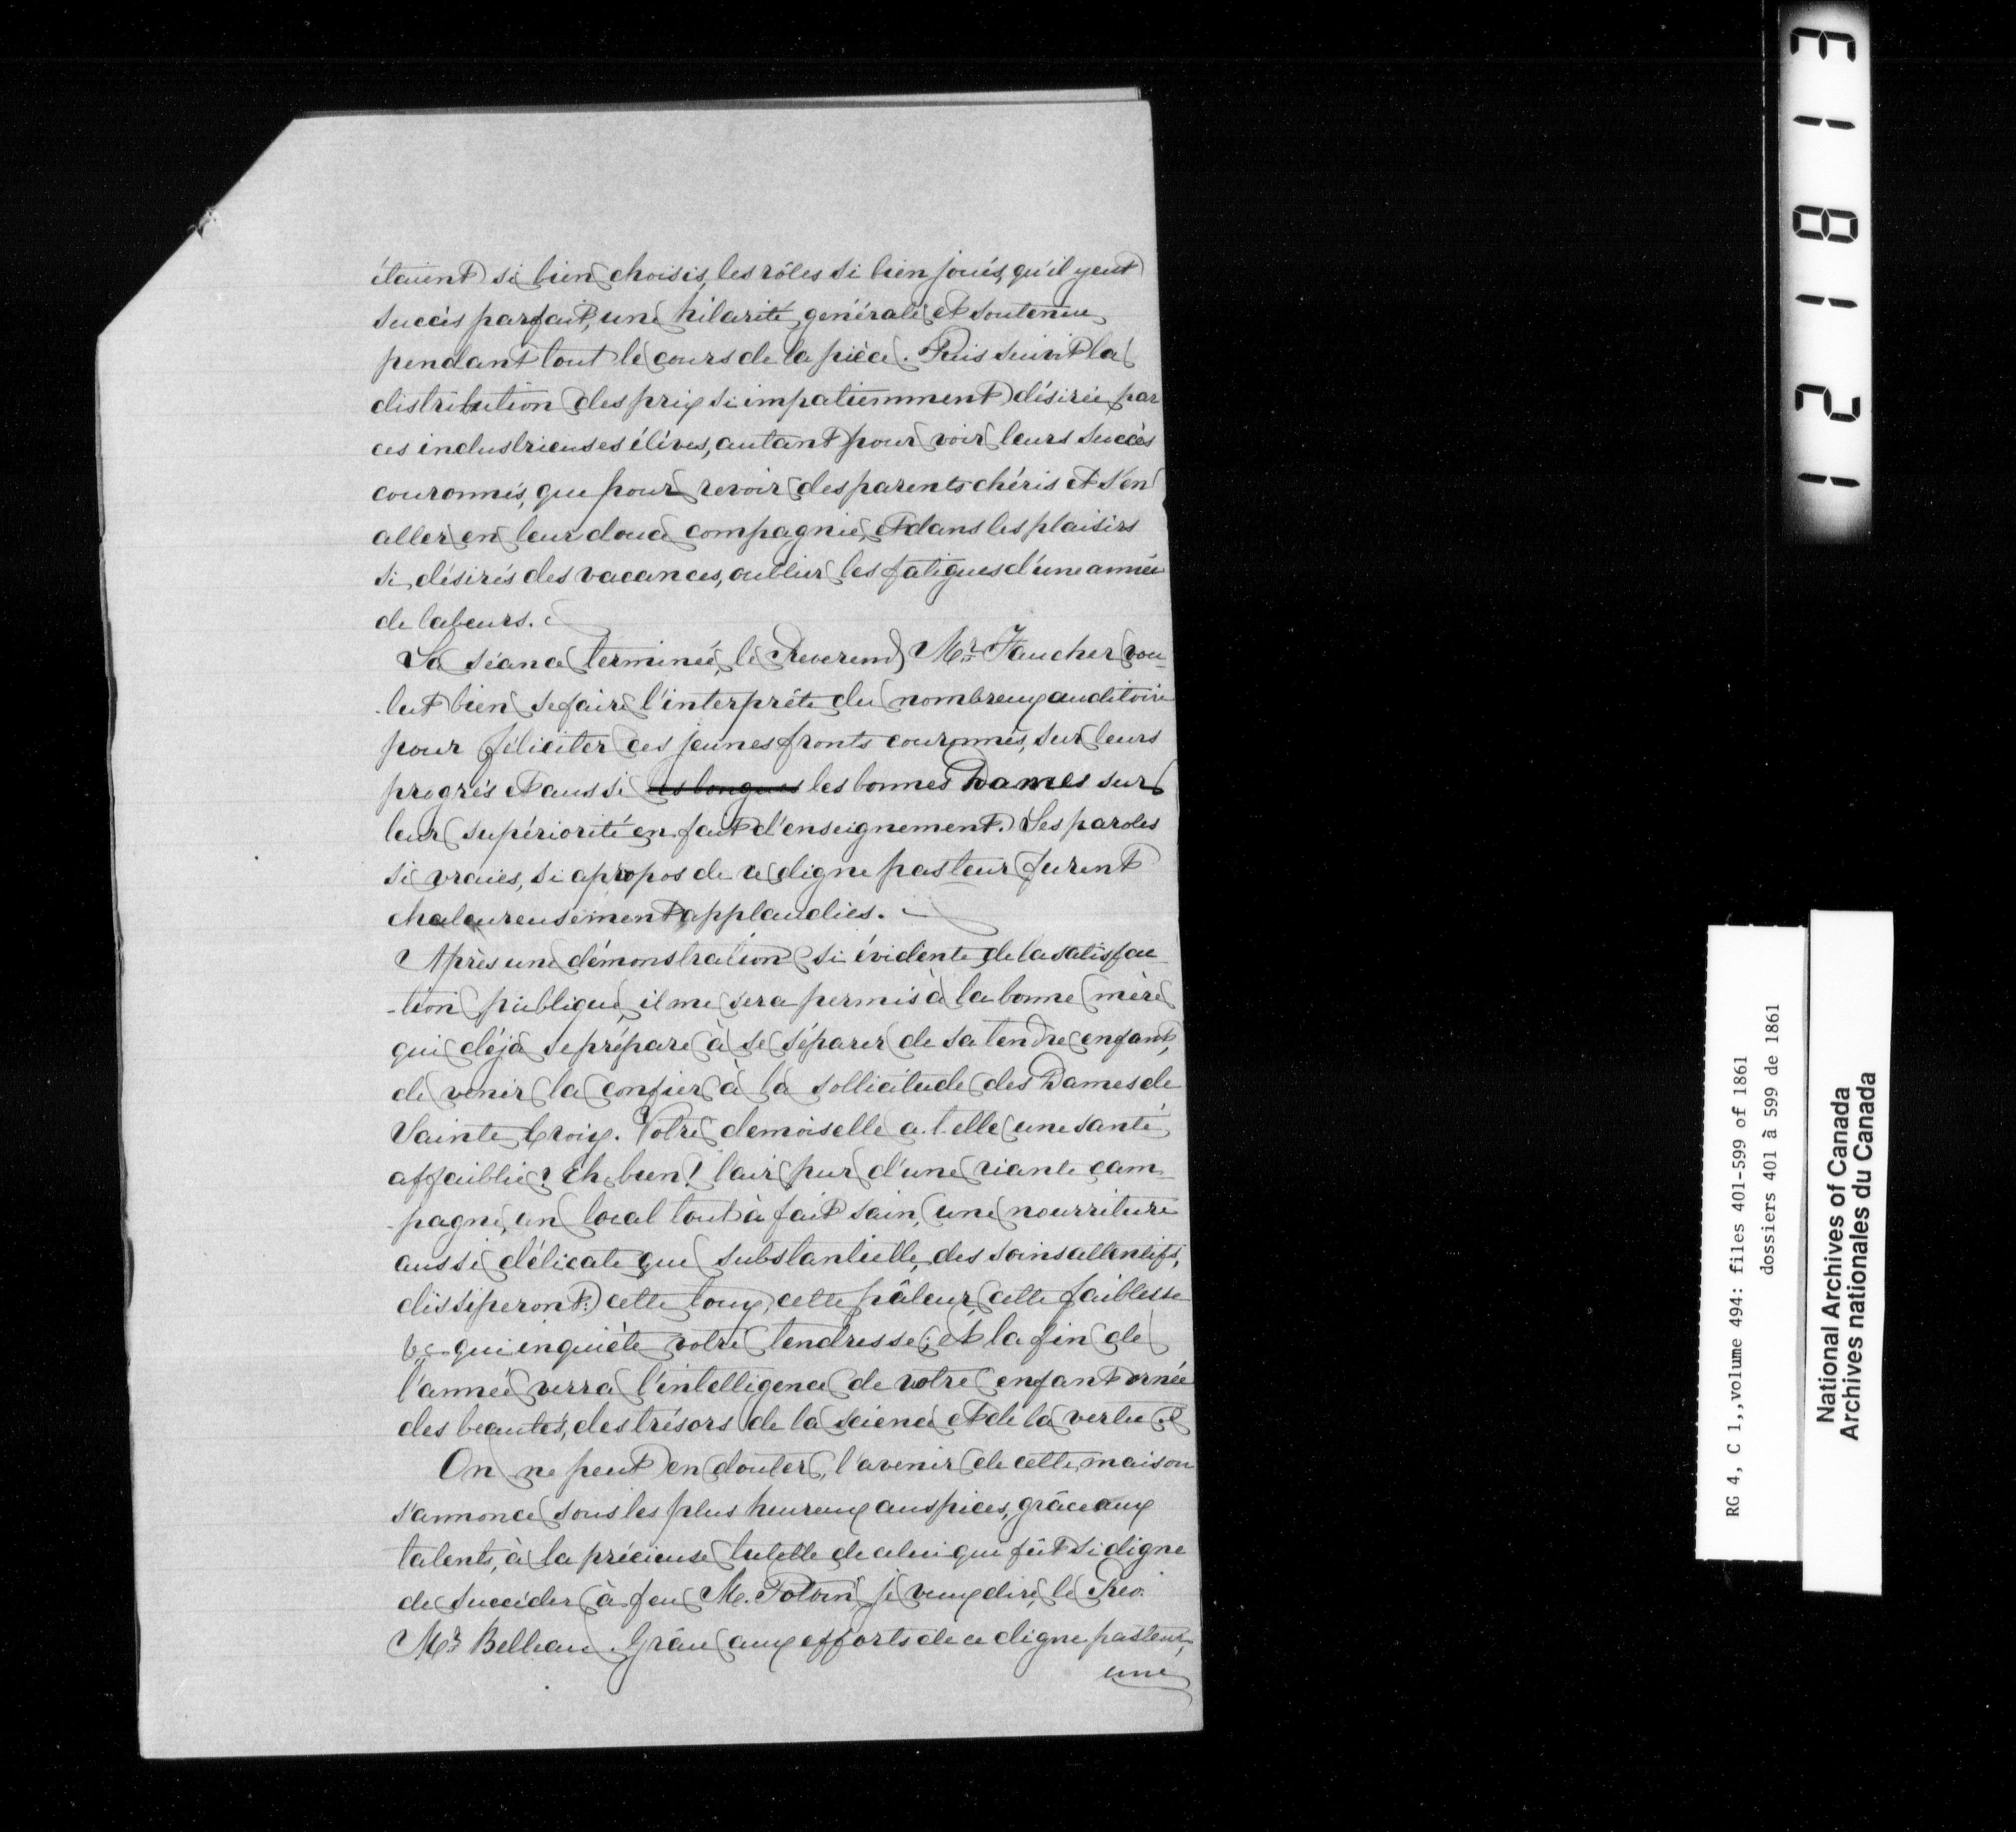 étaient si bien choisis, les rôles si bien joués, qu'il y eut
succès parfait, une hilarité générale et soutenue
pendant tout le cours de la pièce. Puis suivit la
distribution des prix si impatiemment désirée par
ces industrieuses élèves, autant pour voir leurs succès
couronnés, que pour revoir des parents chéris et s'en
aller en leur douce compagnie, et dans les plaisirs
si désirés des vacances, oublier les fatigues d'une année
de labeurs.
La séance terminée, le Reverend Mr. Faucher vou-
-lut bien se faire l'interprète du nombreux auditoire
pour féliciter ces jeunes fronts couronnés, sur leurs
progrès et aussi les longues les bonnes Dames sur
leur supériorité en fait d'enseignement. Les paroles
si vraies, si apropos de ce digne pasteur furent
chaleureusement applaudies.
Après une démonstration si évidente de la satisfac
-tion publique, il me sera permis à la bonne mère
qui déjà se prépare à se séparer de sa tendre enfant,
de venir la confier à la sollicitude des Dames de
Sainte Croix. Votre demoiselle a-t-elle une santé
affaiblie? Eh bien! l'air pur d'une riante cam-
-pagne, un local tout à fait sain, une nourriture
aussi délicate que substantielle, des soins attentifs,
dissiperont: cette toux, cette pâleur, cette faiblesse
&c. qui inquiète votre tendresse; et la fin de
l'année verra l'intelligence de votre enfant ornée
des beautés, des trésors de la science et de la vertu.
On ne peut en douter, l'avenir de cette maison
s'annonce sous les plus heureux auspices, grâce aux
talents, à la précieuse tutelle de celui qui fût si digne
de succéder à feu M. Potvin, je veux dire, le Rev.
Mr. Belleau. Grâce aux efforts de ce digne pasteur,
une
1 2 1 8 1 3
RG 4, C 1,,volume 494: files 401-599 of 1861
dossiers 401 à 599 de 1861
National Archives of Canada
Archives nationales du Canada